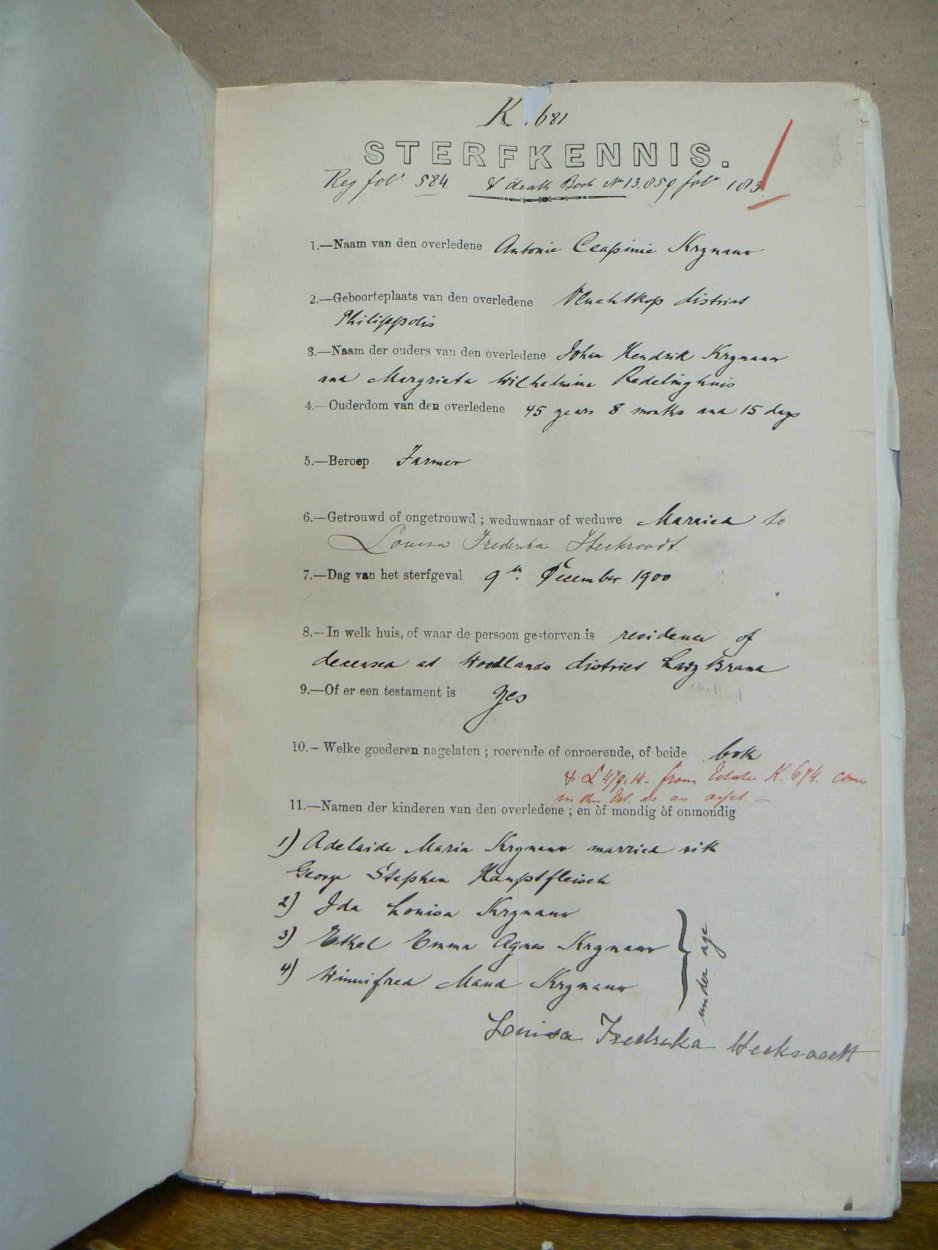 K. 681
STERFKENNIS.
Reg folº 584 & death Book Nº 13.859 folº 183
1.—Naam van den overledene Antonie Ceapinie Krynauw
2.—Geboorteplaats van den overledene Vluchtkop district
Philippolis
3.—Naam der ouders van den overledene Johan Hendrik Krynauw
and Margrieta Wilhelmina Redelinghuis
4.—Ouderdom van den overledene 45 years 8 months and 15 days
5.—Beroep Farmer
6.—Getrouwd of ongetrouwd ; weduwnaar of weduwe Married to
Louisa Frederika Heckroodt
7.—Dag van het sterfgeval 9th. December 1900
8.—In welk huis, of waar de persoon gestorven is residence of
deceased at Woodlands district Ladybrand
9.—Of er een testament is Yes
10.—Welke goederen nagelaten ; roerende of onroerende, of beide both
& £ from Estate K. 674. comes
in this Est. as an asset —
11.—Namen der kinderen van den overledene ; en òf mondig òf onmondig
1) Adelaide Maria Krynauw married with
George Stephen Hauptfleisch
2) Ida Louisa Krynauw
3) Ethel Emma Agnes Krynauw
4) Winnifred Maud Krynauw
under age
Louisa Fredrika Heckroodt